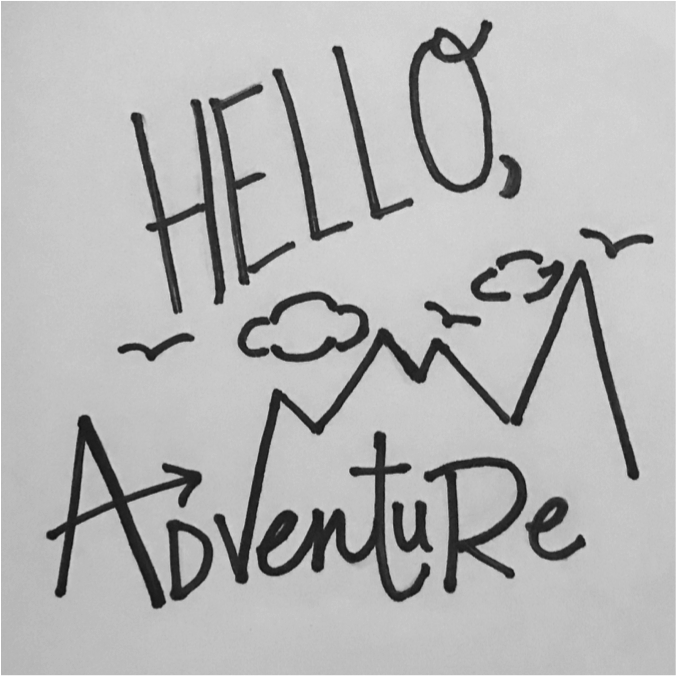 HELLO,
ADventuRe